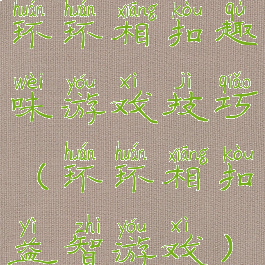 huán huán xiāng kòu qù
环环相扣趣
wèi yóu xì jì qiǎo
味游戏技巧
huán huán xiāng kòu
(环环相扣
yì zhì yóu xì
益智游戏)